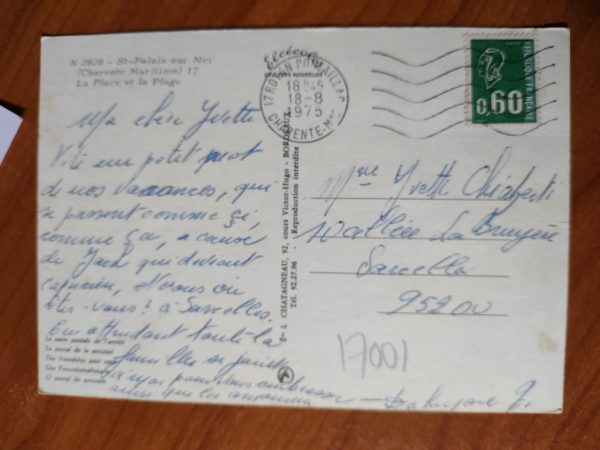 N 2626 - St-Palais sur Mer
(Charente Maritime) 17
La Place et la Plage
Ma chère Yvette
Vite un petit mot
de nos vacances, qui
se passent comme çi,
comme ça, a cause
de Jack qui devient
Et vous où
êtes-vous? à Sarcelles.
En attendant toute la
famille se joint
à moi pour vous embrasser
ainsi que les
La carte postale de l'amitié
La postal de la amistad
Our friendship post card
Die Freundschaftskarte
O postal da amizade
Ets J. CHATAGNEAU, 92, cours Victor-Hugo - BORDEAUX
Tél. 92.27.96 - Reproduction interdite
17 ROYAN POMPAILLAC
18H45
18-8
1975
CHARENTE-Mme
0,60
REPUBLIQUE FRANCAISE
Mme Yvette Chiaberti
La Bruyère
Sarcelles
95200
17001